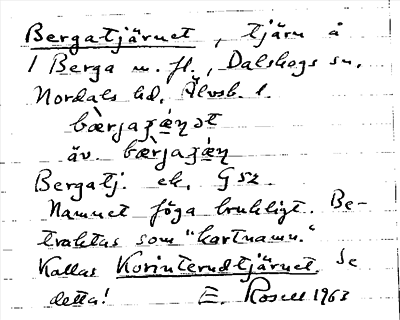 Bergatjärnet, tjärn å
1 Berga m. fl., Dalskogs sn,
Nordals hd, Älvsb. l.
äv.
Bergatj. ek. GSZ.
Namnet föga brukligt. Be-
traktas som "kartnamn."
Kallas Korinterudtjärnet. Se
detta! E. Rosell 1963